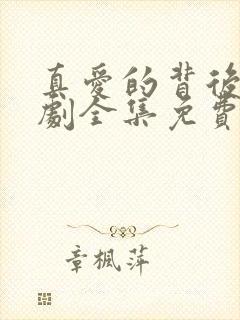 真愛的背後
劇全集免費
章楓萍